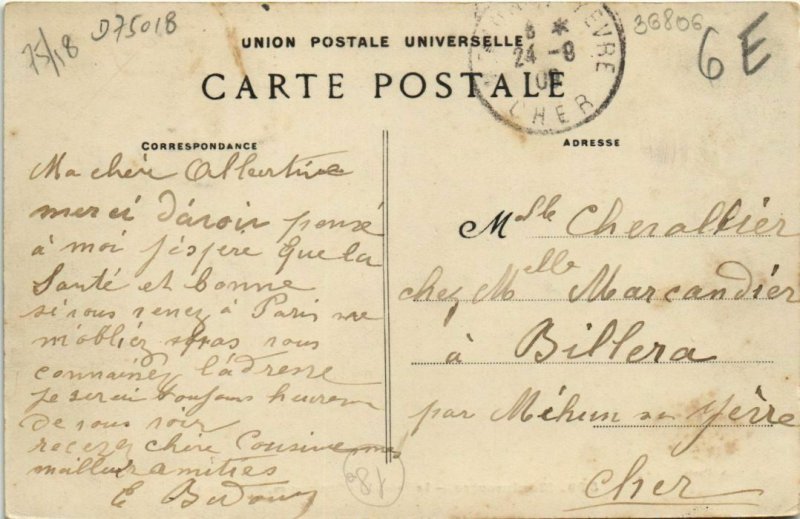 75/18
D75018
36806
6E
UNION POSTALE UNIVERSELLE
CARTE POSTALE
24 -9
CHER
CORRESPONDANCE
ADRESSE
Ma chère Albertine
merci d'avoir pensé
à moi j'espère que la
Santé et bonne
si vous venez à Paris ne
m'oblier pas vous
connaissez l'adresse
je serai toujours heureux
de vous voir
recevez chère Cousine mes
meilleur amitiés
E
Mlle Chevallier
chez Mlle Marcandier
à Billera
par Méhun sur Yèvre
Cher
18e